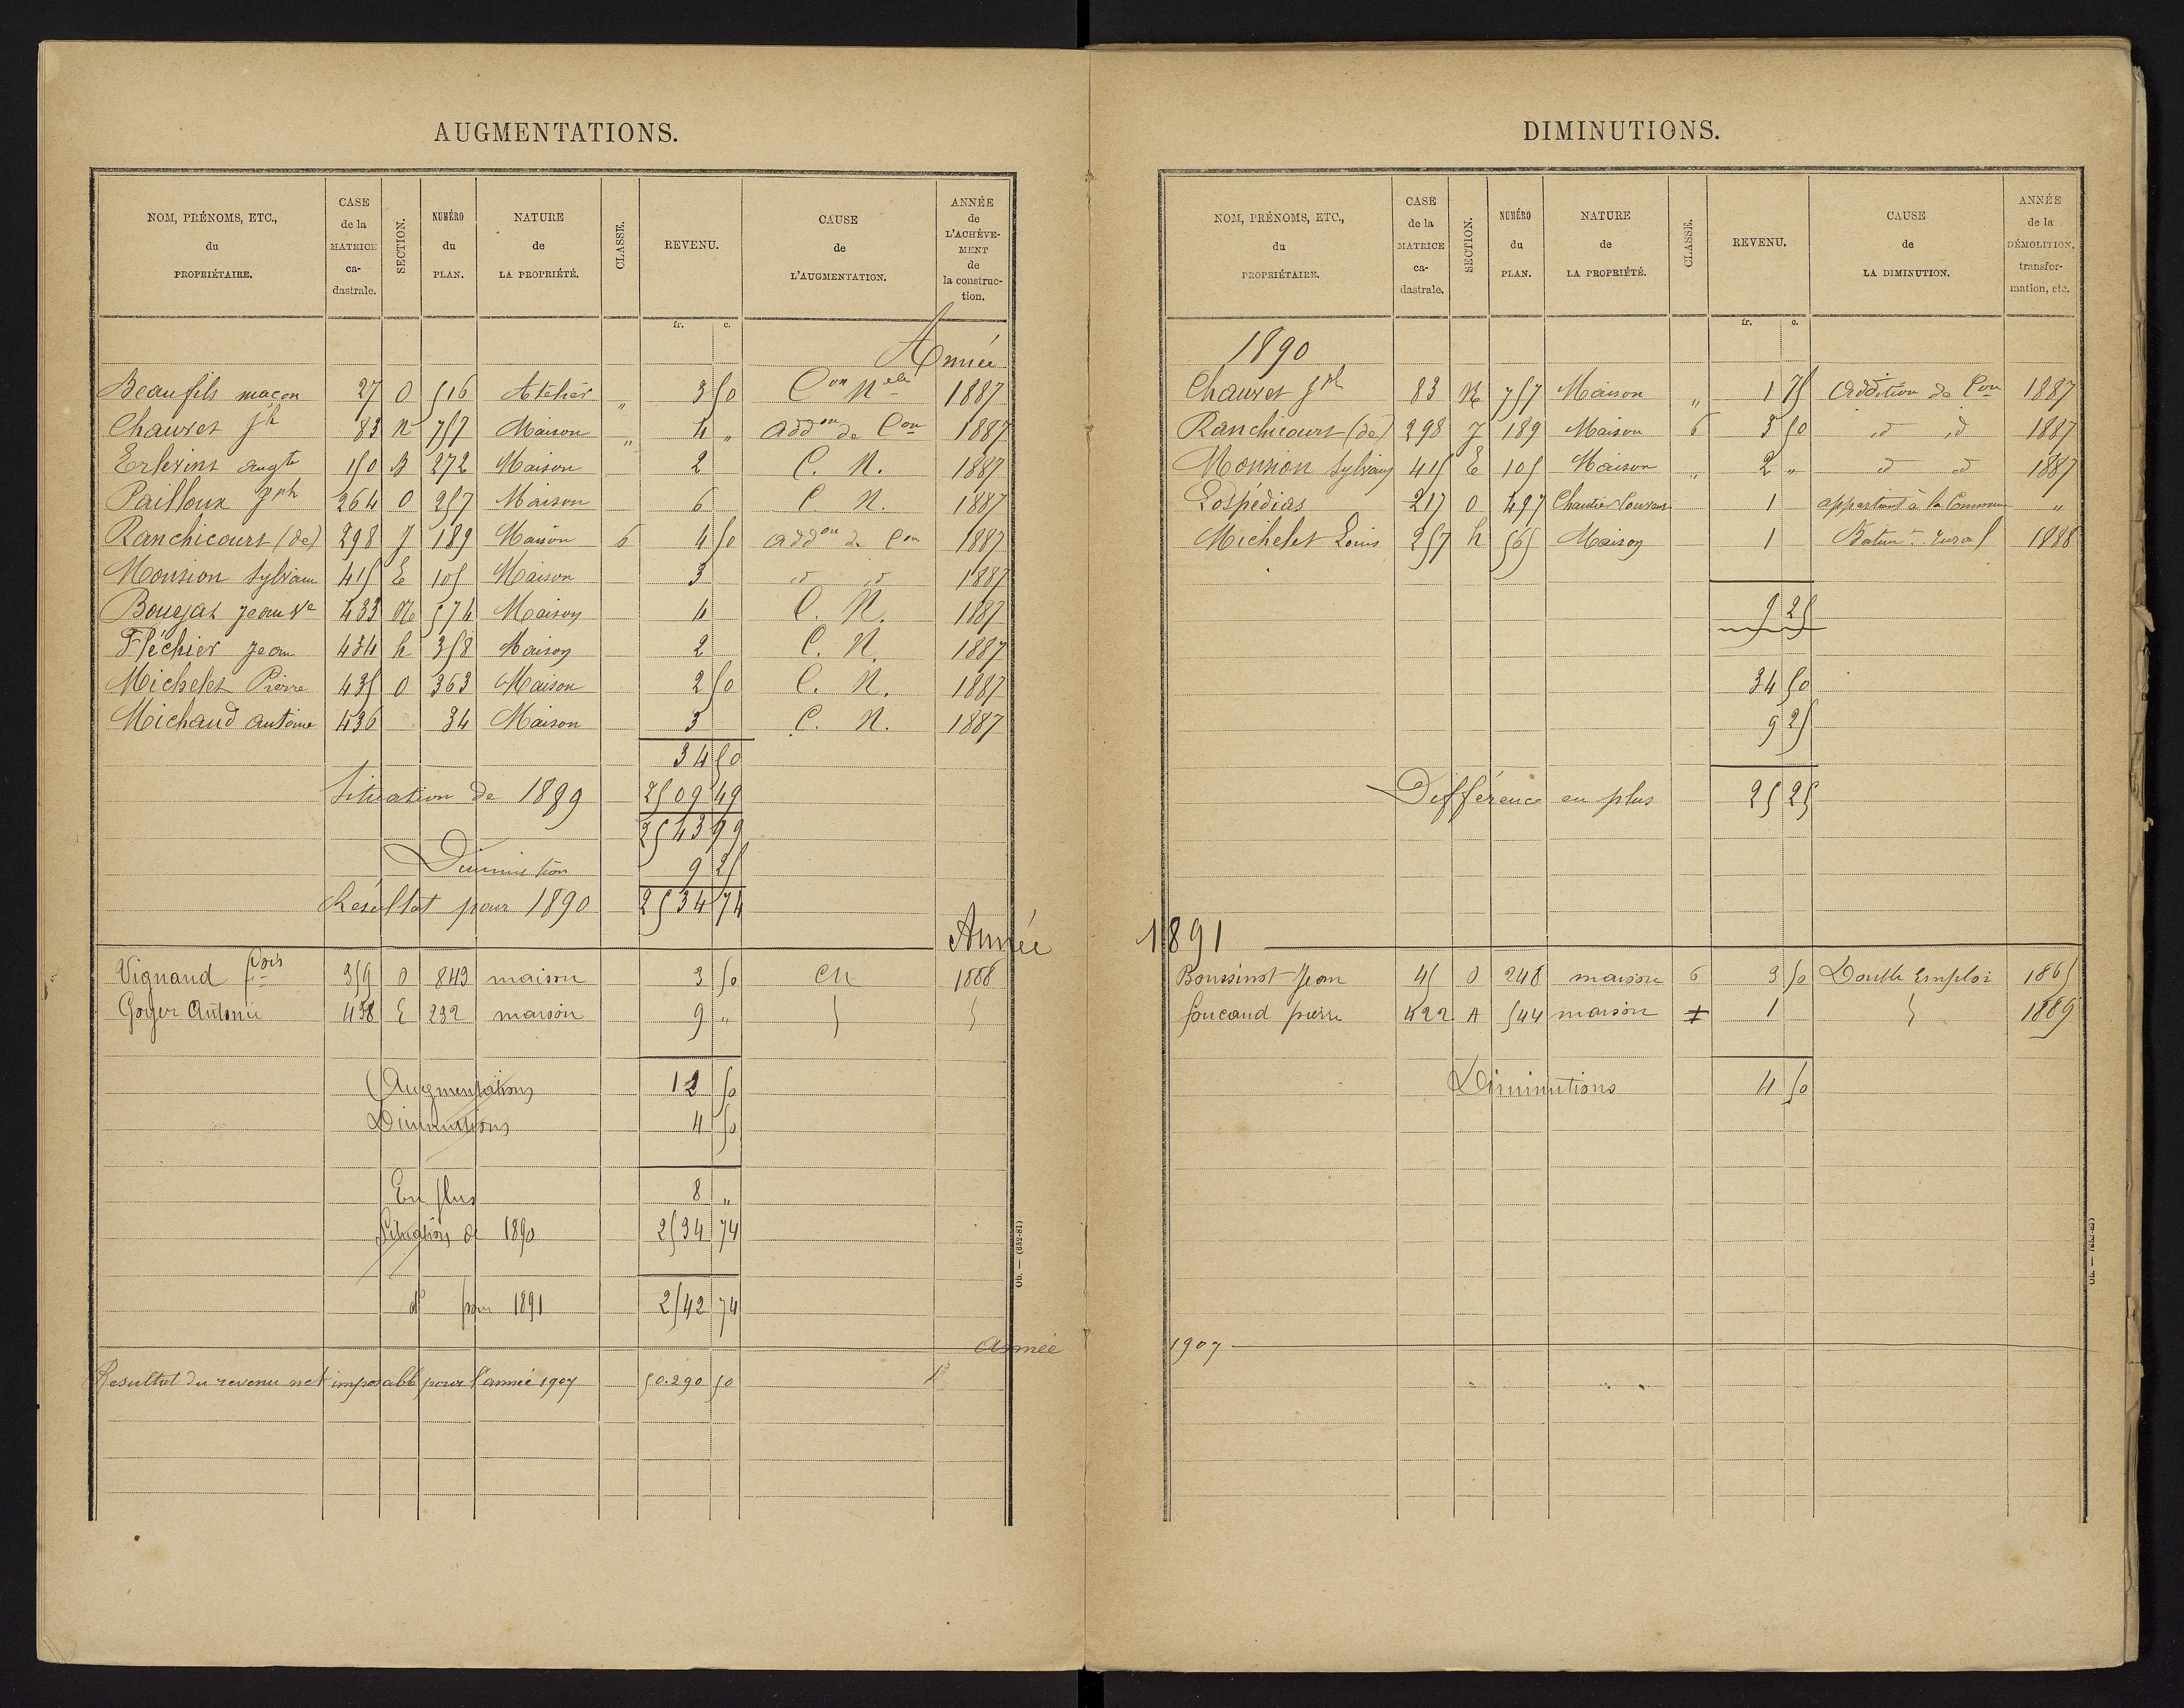 AUGMENTATIONS.
NOM, PRÉNOMS, ETC., du PROPRIÉTAIRE. CASE de la MATRICE ca-dastrale. SECTION. NUMÉRO du PLAN. NATURE de LA PROPRIÉTÉ. CLASSE. REVENU. CAUSE de L'AUGMENTATION. ANNÉE de L'ACHÈVE-MENT de la construc-tion.
fr. c.
Année
Beaufils maçon 27 O 516 Atelier " 3 50 Con Nelle 1887
Chauvet Jh 83 N 757 Maison " 4 " addon de Con 1887
Erlevint augte 150 B 272 Maison 2 C. N. 1887
Pailloux Jph 264 O 257 Maison 6 C. N. 1887
Ranchicourt (de) 298 J 189 Maison 6 4 50 addon de Con 1887
Monsion Sylvain 415 E 105 Maison 3 id id 1887
Boujat Jean Ve 433 M 574 Maison 4 C. N. 1887
Fléchier Jean 434 h 358 Maison 2 C. N. 1887
Michelet Pierre 435 O 363 Maison 2 50 C. N. 1887
Michaud Antoine 436 34 Maison 3 C. N. 1887
34 50
Situation de 1889 2509 49
2543 99
Diminution 9 25
Résultat pour 1890 2534 74
Année
Vignaud fcois 359 O 843 maison 3 50 CN 1886
Goyer Antoine 438 E 232 maison 9 "
Augmentations 12 50
Diminutions 4 50
En plus 8 "
Situation de 1890 2534 74
do pour 1891 2542 74
Année
Resultat du revenu net imposable pour l'année 1907 50.290 50
Ob. — (652-81)
DIMINUTIONS.
NOM, PRÉNOMS, ETC., du PROPRIÉTAIRE. CASE de la MATRICE ca-dastrale. SECTION. NUMÉRO du PLAN. NATURE de LA PROPRIÉTÉ. CLASSE. REVENU. CAUSE de LA DIMINUTION. ANNÉE de la DÉMOLITION, transfor-mation, etc.
fr. c.
1890
Chauvet Jph 83 N 757 Maison " 1 75 Addition de Con 1887
Ranchicourt (de) 298 J 189 Maison 6 3 50 id id 1887
Monsion Sylvain 415 E 105 Maison " 2 " id id 1887
Lospédias 217 O 497 Chantier Couvert 1 appartient à la Commune "
Michelet Louis 257 h 565 Maison 1 Batimt rural 1888
9 25
34 50
9 25
Différence en plus 25 25
1891
Boussinot Jean 45 O 248 maison 6 3 50 Double Emploi 1865
foucaud pierre 422 A 544 maison 7 1 1889
Diminutions 4 50
1907
Ob. — (652-81)